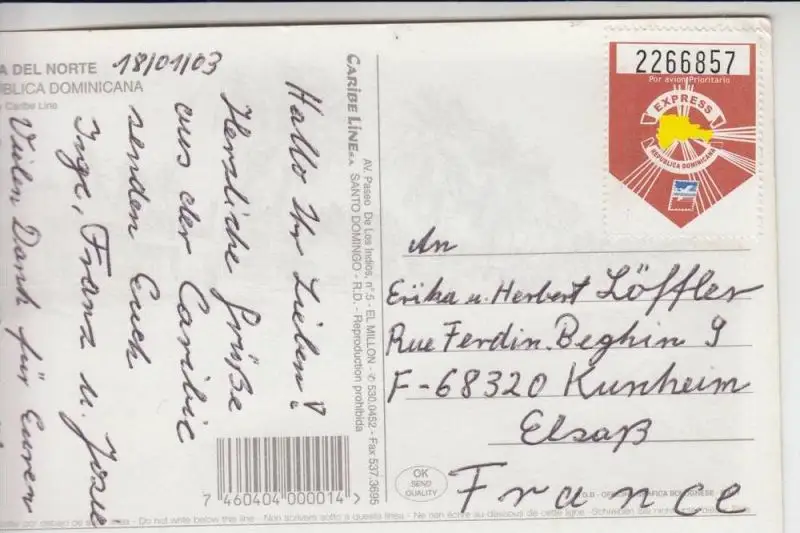 A DEL NORTE
PÚBLICA DOMINICANA
Caribe Line
18/01/03
Hallo Ihr Lieben!
Herzliche Grüße
aus der Caribic
senden Euch
Inge, Franz u. Josie
Vielen Dank für Euren
CARIBE LINE S.A.
AV. Paseo De Los Indios, n° 5 - EL MILLON - ✆ 530.0452 - Fax 537.3695
SANTO DOMINGO - R.D. - Reproduction prohibida
2266857
Por avion Prioritario
EXPRESS
REPUBLICA DOMINICANA
An
Erika u. Herbert Löffler
Rue Ferdin. Beghin 9
F-68320 Kunheim
Elsaß
France
7 460404 000014 >
OK
SEND
QUALITY
Do not write below this line - Non scrivere sotto a questa linea - Ne rien écrire au-dessous de cette ligne - Schreiben Sie nicht